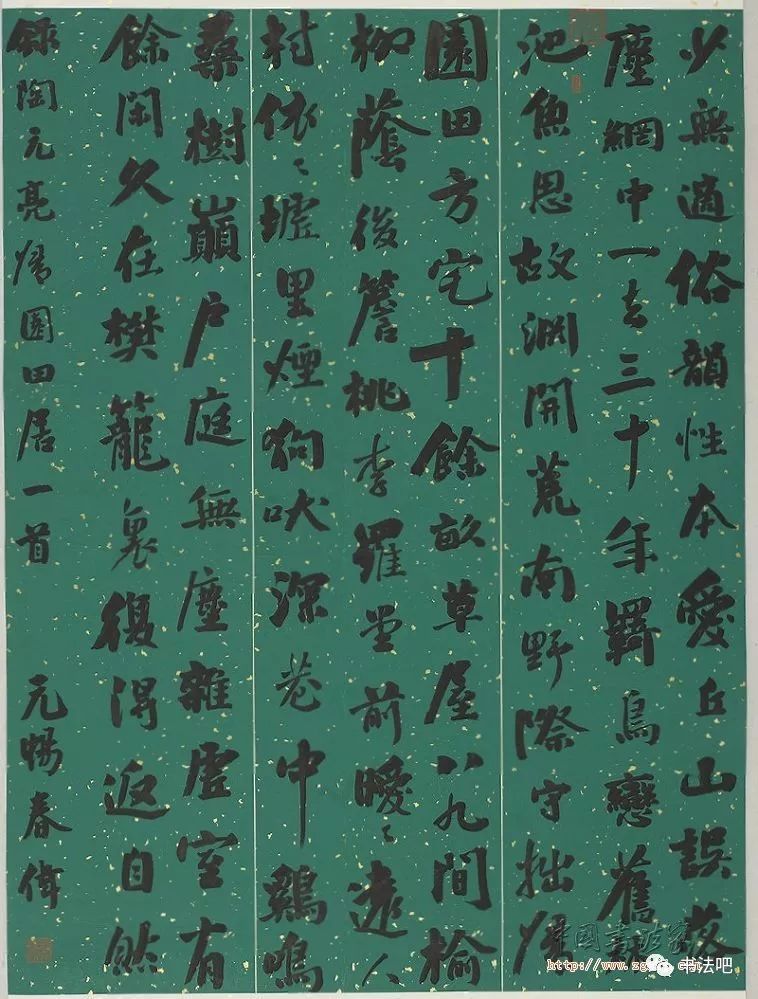 少無適俗韻性本愛丘山誤落
塵網中一去三十年羈鳥戀舊林
池魚思故淵開荒南野際守拙歸
園田方宅十餘畝草屋八九間榆
柳蔭後簷桃李羅堂前曖〻遠人
村依〻墟里煙狗吠深巷中鷄鳴
桑樹巔户庭無塵雜虛室有
餘閑久在樊籠裏復得返自然
錄陶元亮歸園田居一首 元暢春偉
书法吧